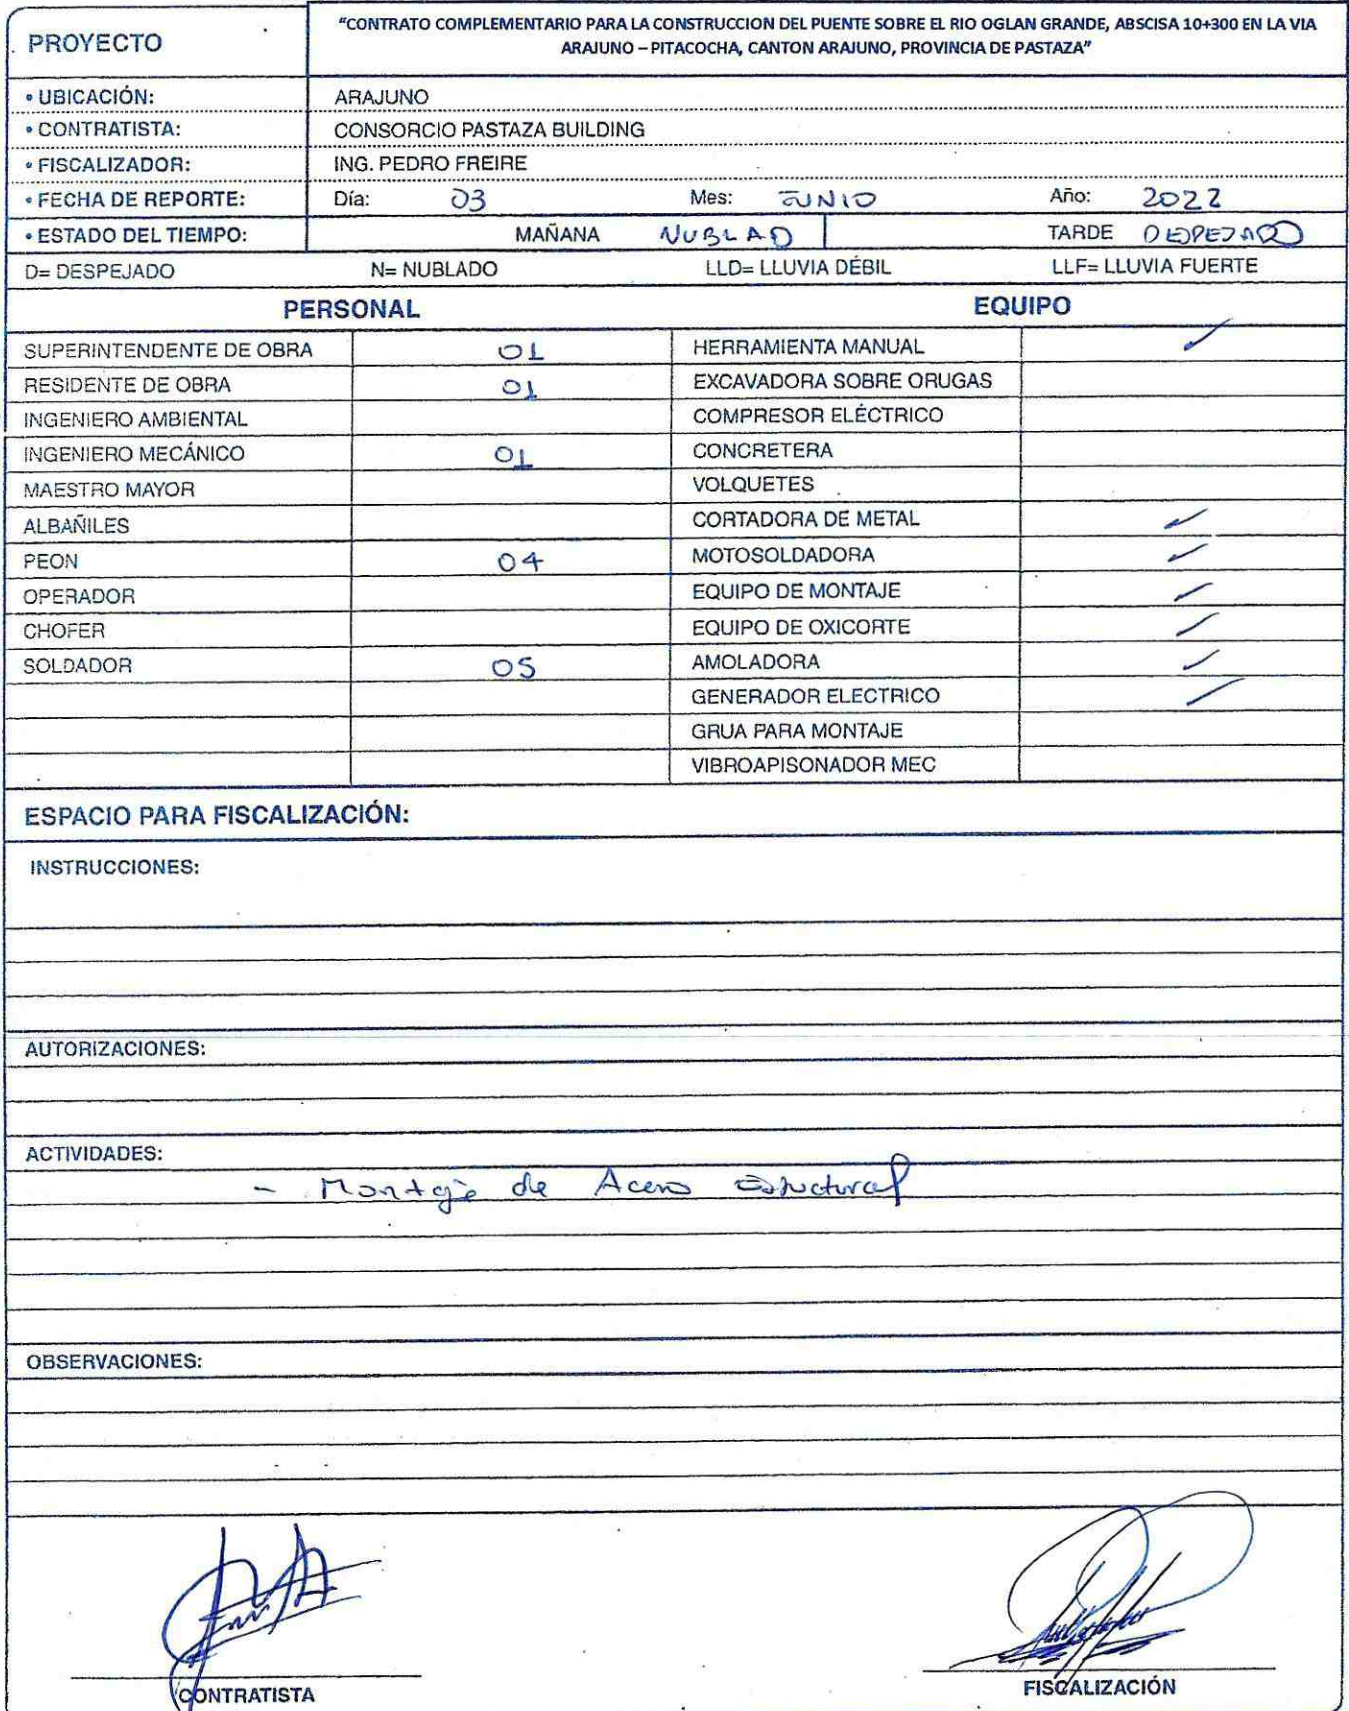 PROYECTO
“CONTRATO COMPLEMENTARIO PARA LA CONSTRUCCION DEL PUENTE SOBRE EL RIO OGLAN GRANDE, ABSCISA 10+300 EN LA VIA
ARAJUNO – PITACOCHA, CANTON ARAJUNO, PROVINCIA DE PASTAZA”
• UBICACIÓN: ARAJUNO
• CONTRATISTA: CONSORCIO PASTAZA BUILDING
• FISCALIZADOR: ING. PEDRO FREIRE
• FECHA DE REPORTE: Día: 03 Mes: JUNIO Año: 2022
• ESTADO DEL TIEMPO: MAÑANA NUBLAD TARDE DESPEJADO
D= DESPEJADO N= NUBLADO LLD= LLUVIA DÉBIL LLF= LLUVIA FUERTE
PERSONAL EQUIPO
SUPERINTENDENTE DE OBRA 01 HERRAMIENTA MANUAL ✓
RESIDENTE DE OBRA 01 EXCAVADORA SOBRE ORUGAS
INGENIERO AMBIENTAL COMPRESOR ELÉCTRICO
INGENIERO MECÁNICO 01 CONCRETERA
MAESTRO MAYOR VOLQUETES
ALBAÑILES CORTADORA DE METAL ✓
PEON 04 MOTOSOLDADORA ✓
OPERADOR EQUIPO DE MONTAJE ✓
CHOFER EQUIPO DE OXICORTE ✓
SOLDADOR 05 AMOLADORA ✓
GENERADOR ELECTRICO ✓
GRUA PARA MONTAJE
VIBROAPISONADOR MEC
ESPACIO PARA FISCALIZACIÓN:
INSTRUCCIONES:
AUTORIZACIONES:
ACTIVIDADES:
- Montaje de Acero Estructural
OBSERVACIONES:
CONTRATISTA FISCALIZACIÓN